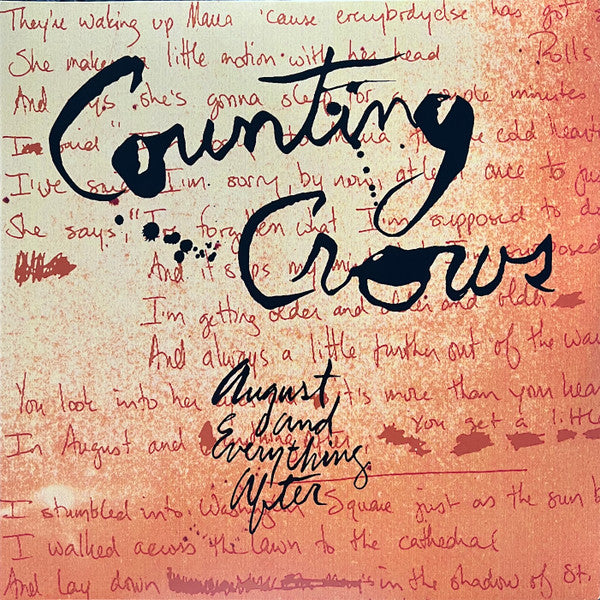 They're waking up Maria 'cause everybodyelse has got s
She makes a little motion with her head Rolls
Counting
And says she's gonna sleep for a couple minutes
said cold hearts
I've said I'm sorry by now, at least once to jus
She says, "I've forgotten what I'm supposed to do
Crows
And it slips my supposed
I'm getting older and older and older
And always a little further out of the way
August
and
Everything
After
You look into her it's more than your hear
In August and You get a little
I stumbled into Washington Square just as the sun b
I walked across the lawn to the cathedral
And lay down in the shadow of St.